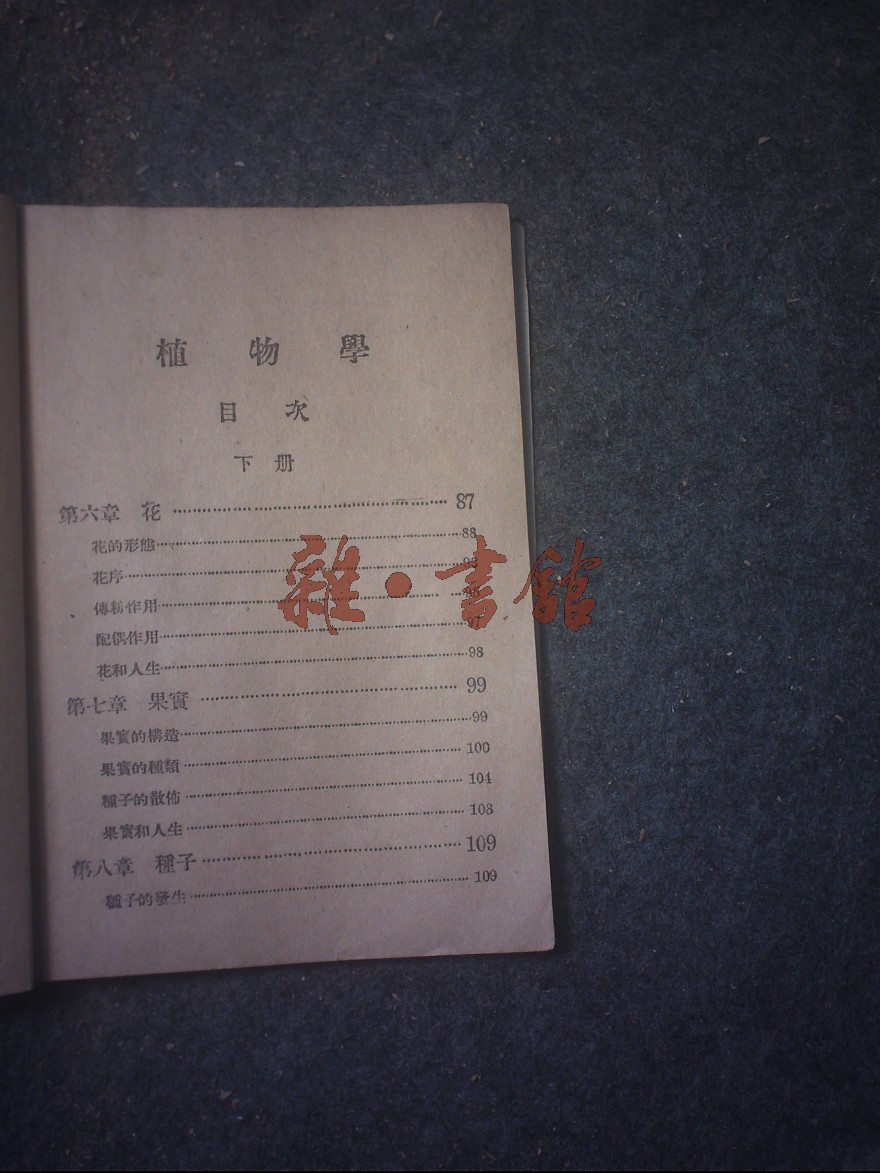 植物學
目次
下册
第六章 花 87
花的形態 88
花序
傳粉作用
配偶作用
花和人生 98
第七章 果實 99
果實的構造 99
果實的種類 100
種子的散佈 104
果實和人生 108
第八章 種子 109
種子的發生 109
雜·書館